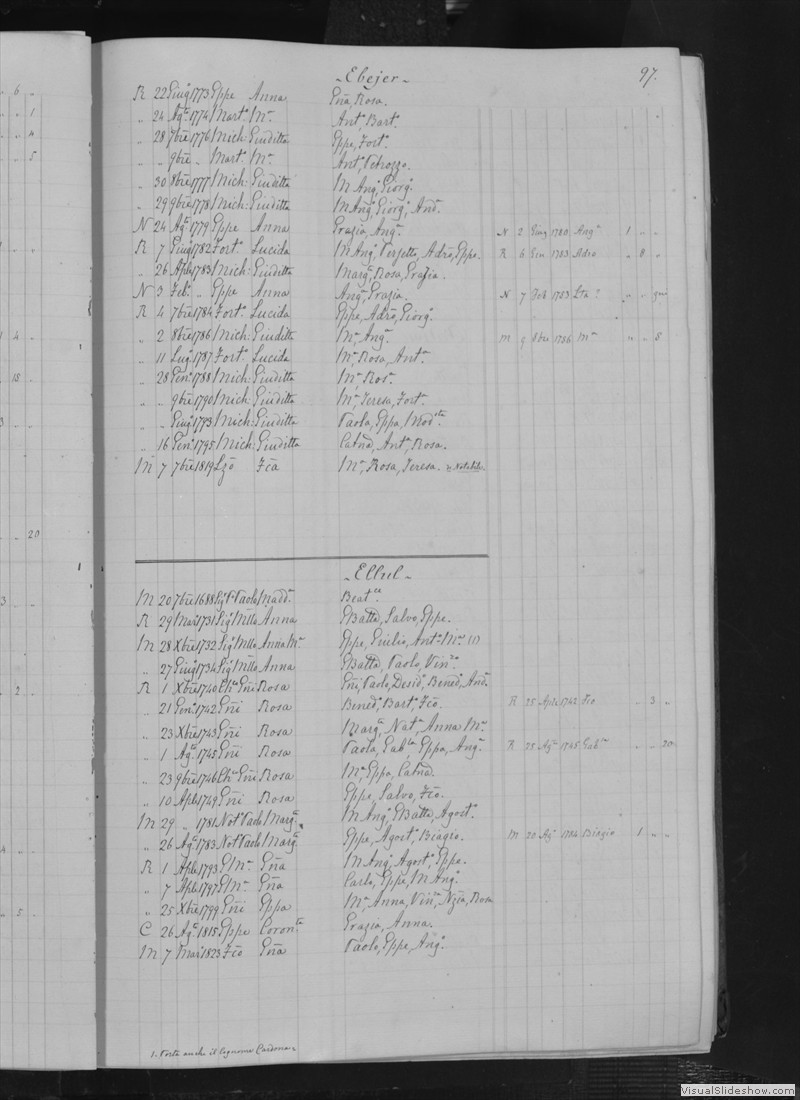 97.
- Ebejer -
R 22 Giug 1773 Gppe Anna Gña, Rosa.
„ 24 Agº 1774 Martº Mª Antº, Bartº.
„ 28 7bre 1776 Mich: Giuditta Gppe, Fortº.
„ „ 9bre „ Martº Mª Antº
„ 30 8bre 1777 Mich: Giuditta M Angª, Giorgº.
„ 29 9bre 1778 Mich: Giuditta M Angª, Giorgº, Andª.
N 24 Agº 1779 Gppe Anna Grazia, Angª. N 2 Giug 1780 Angª 1 „ „
R 7 Giug 1782 Fortº Lucida M Angª, Adrº, Gppe. R 6 Gen 1783 Adro „ 8 „
„ 26 Aple 1783 Mich: Giuditta Margª, Rosa, Grazia.
N 3 Feb. „ Gppe Anna Angª, Grazia. N 7 Feb 1783
R 4 7bre 1784 Fortº Lucida Gppe, Adrº, Giorgº.
„ 2 8bre 1786 Mich: Giuditta Mª, Angª. M 9 8bre 1786 Mª „ „ 5
„ 11 Lugº 1787 Fortº Lucida Mª, Rosa, Antª.
„ 28 Genº 1788 Mich: Giuditta Mª, Rosª.
„ „ 9bre 1790 Mich: Giuditta Mª, Teresa, Fortª.
„ „ Giugº 1793 Mich: Giuditta Paola, Gppa, Modtta.
„ 16 Genº 1795 Mich: Giuditta Catna, Antª, Rosa.
M 7 7bre 1819 Lzo Fca Mª, Rosa, Teresa. è Notabile.
- Ellul -
M 20 7bre 1688 Sigr Pº Paolo Maddª Beatce.
R 29 Marº 1731 Sigr Mllo Anna GBatta, Salvo, Gppe.
M 28 Xbre 1732 Sigr Mllo Anna Mª Gppe, Giulio, Antº, Mª (1)
„ 27 Giugº 1734 Sigr Mllo Anna GBatta, Paolo, Vinzo.
R 1 Xbre 1740 Gñi Rosa Gñi, Paolo, Desidº, Benedº, Andª.
„ 21 Genº 1742 Gñi Rosa Benedº, Bartº, Fco. R 25 Aple 1742 Fco „ 3 „
„ 23 Xbre 1743 Gñi Rosa Margª, Natª, Anna Mª.
„ 1 Agº 1745 Gñi Rosa Paola, Gabla, Gppa, Angª. R 25 Agº 1745 Gabla „ „ 20
„ 23 9bre 1746 Gñi Rosa Mª, Gppa, Catna.
„ 10 Aple 1749 Gñi Rosa Gppe, Salvo, Fco.
M 29 „ 1781 Notº Paolo Margª M Angª, GBatta, Agostº.
„ 26 Agº 1783 Notº Paolo Margª Gppe, Agostº, Biagio. M 20 Agº 1784 Biagio 1 „ „
R 1 Aple 1793 GMª Gña M Angª, Agostº, Gppe.
„ 7 Aple 1797 GMª Gña Carlo, Gppe, M Angº.
„ 25 Xbre 1799 Gñi Gppa Mª, Anna, Vinza, Nzia, Rosa
C 26 Agº 1815 Gppe Coronta Grazia, Anna.
M 7 Marº 1823 Fco Gña Paolo, Gppe, Angº.
1. Porta anche il cognome Cardona.
VisualSlideshow.com